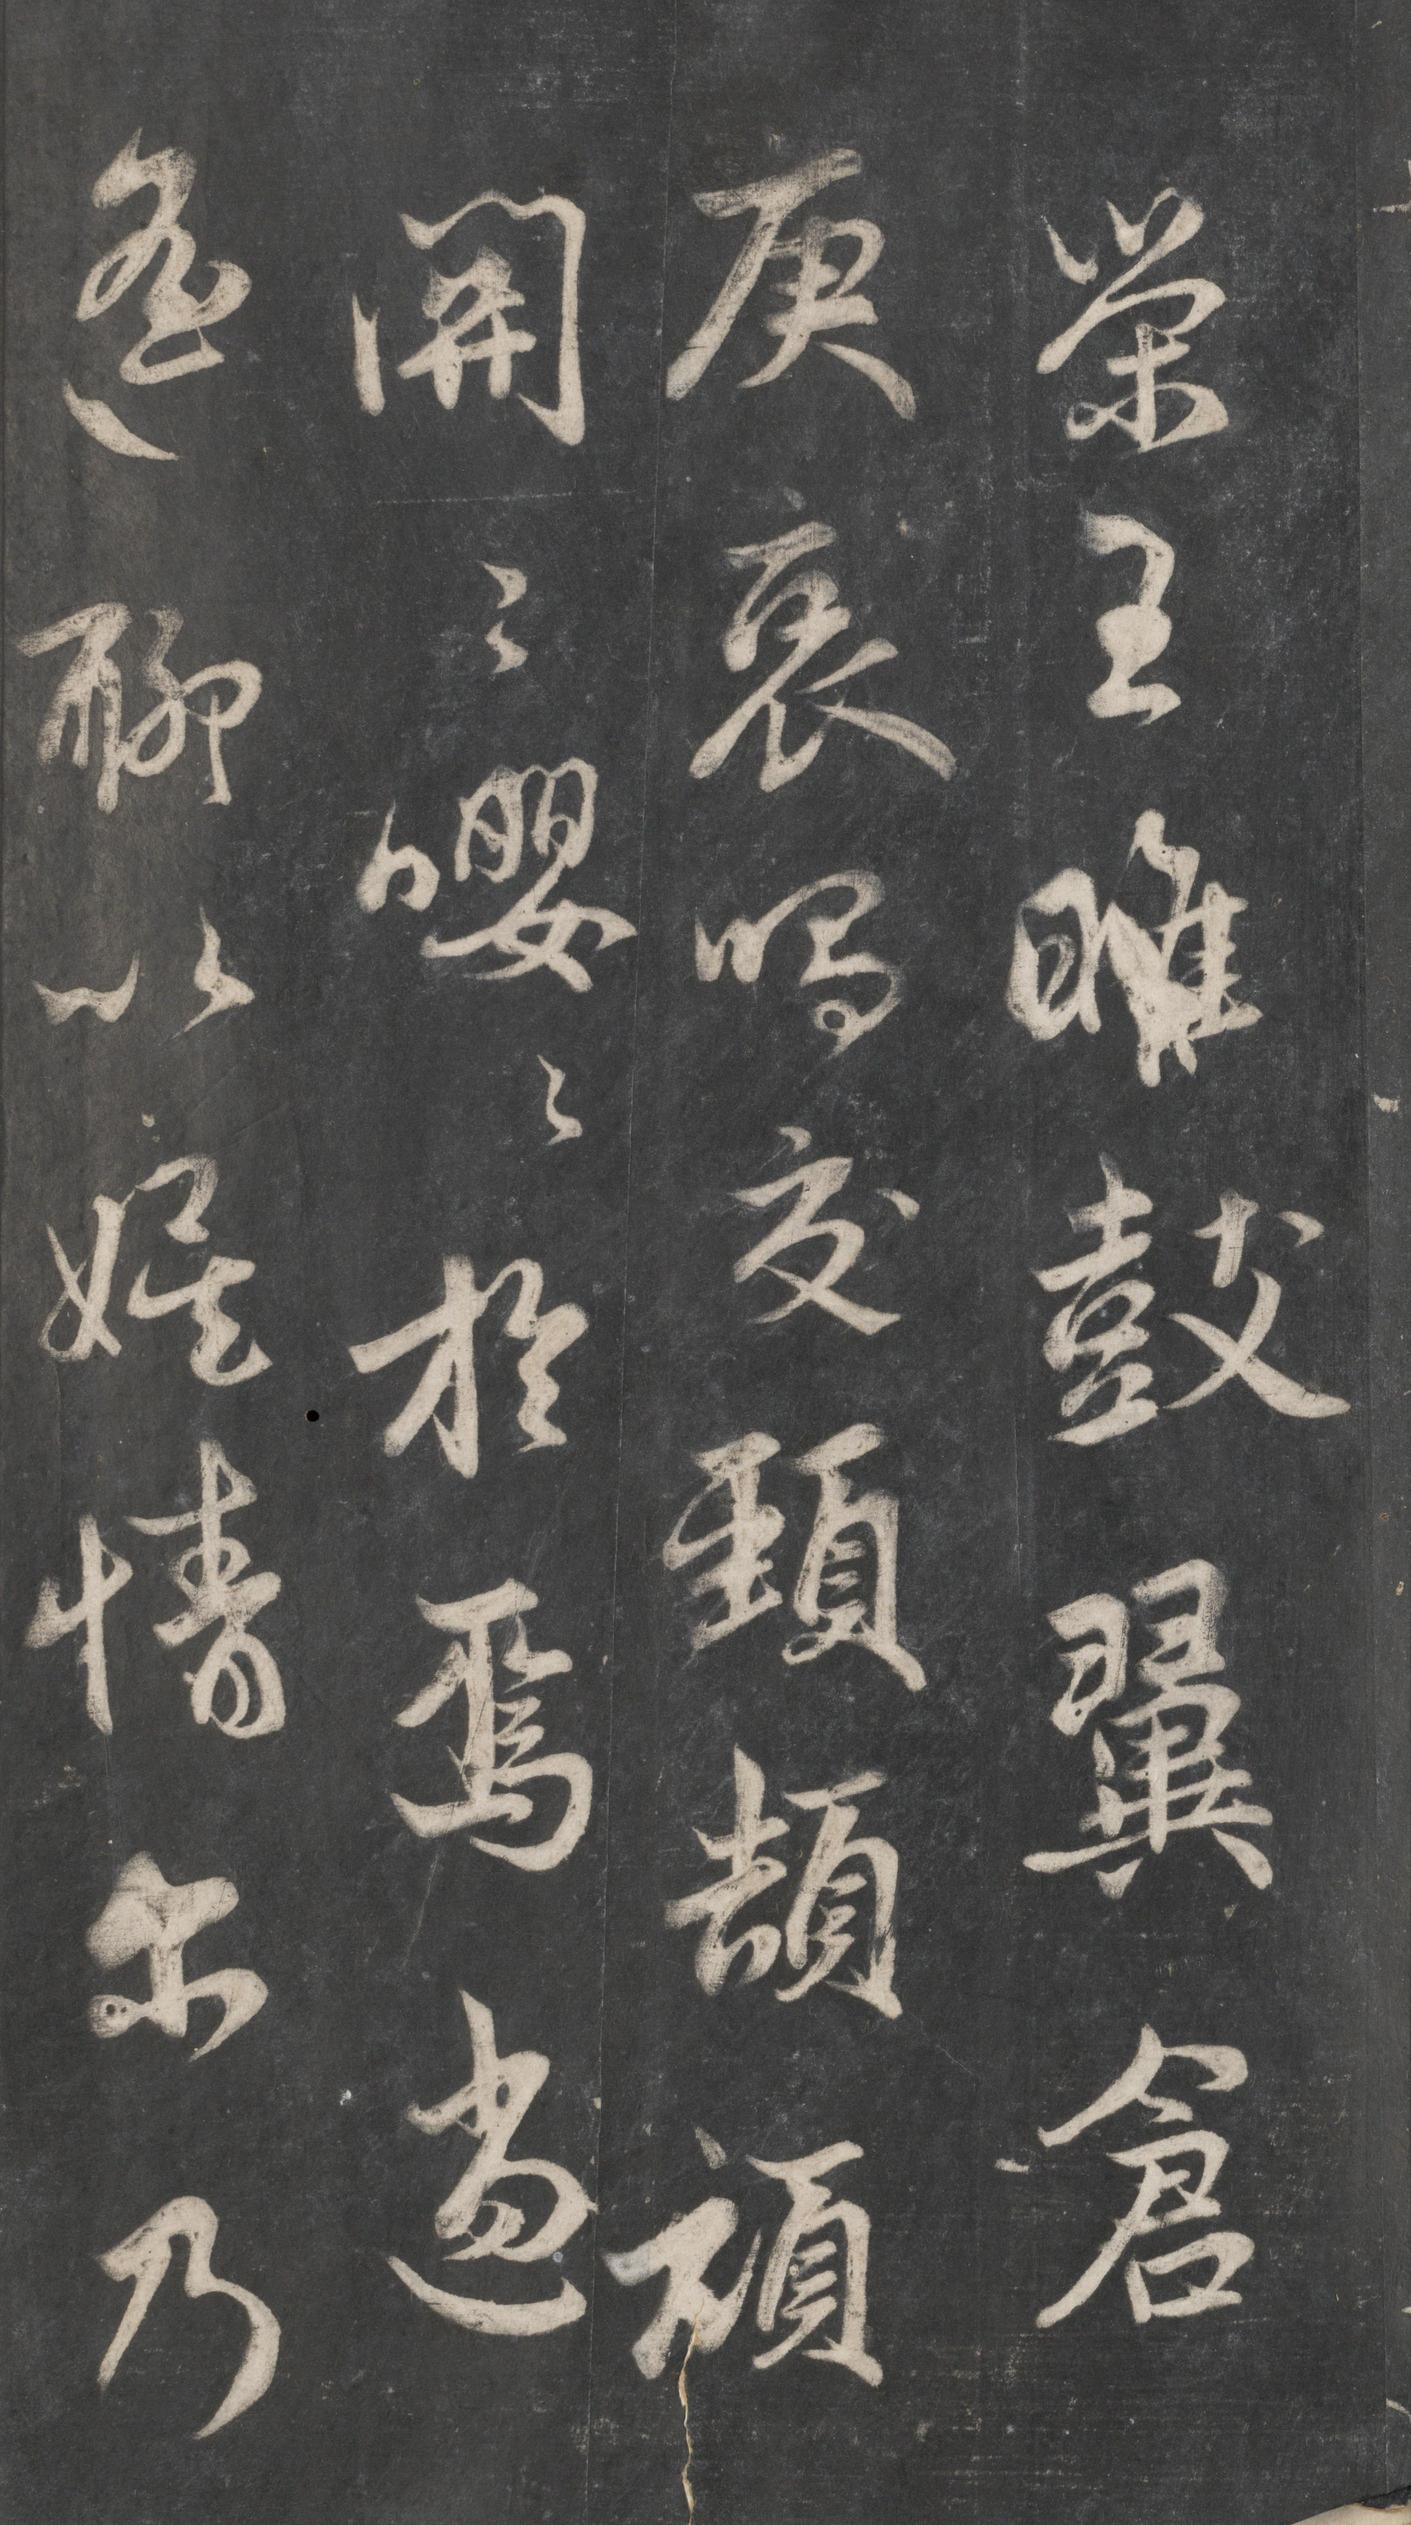 榮王雎鼓翼倉
庚哀鳴交頸頡頏
關〻嚶〻於焉逍
遙聊以娛情尔乃